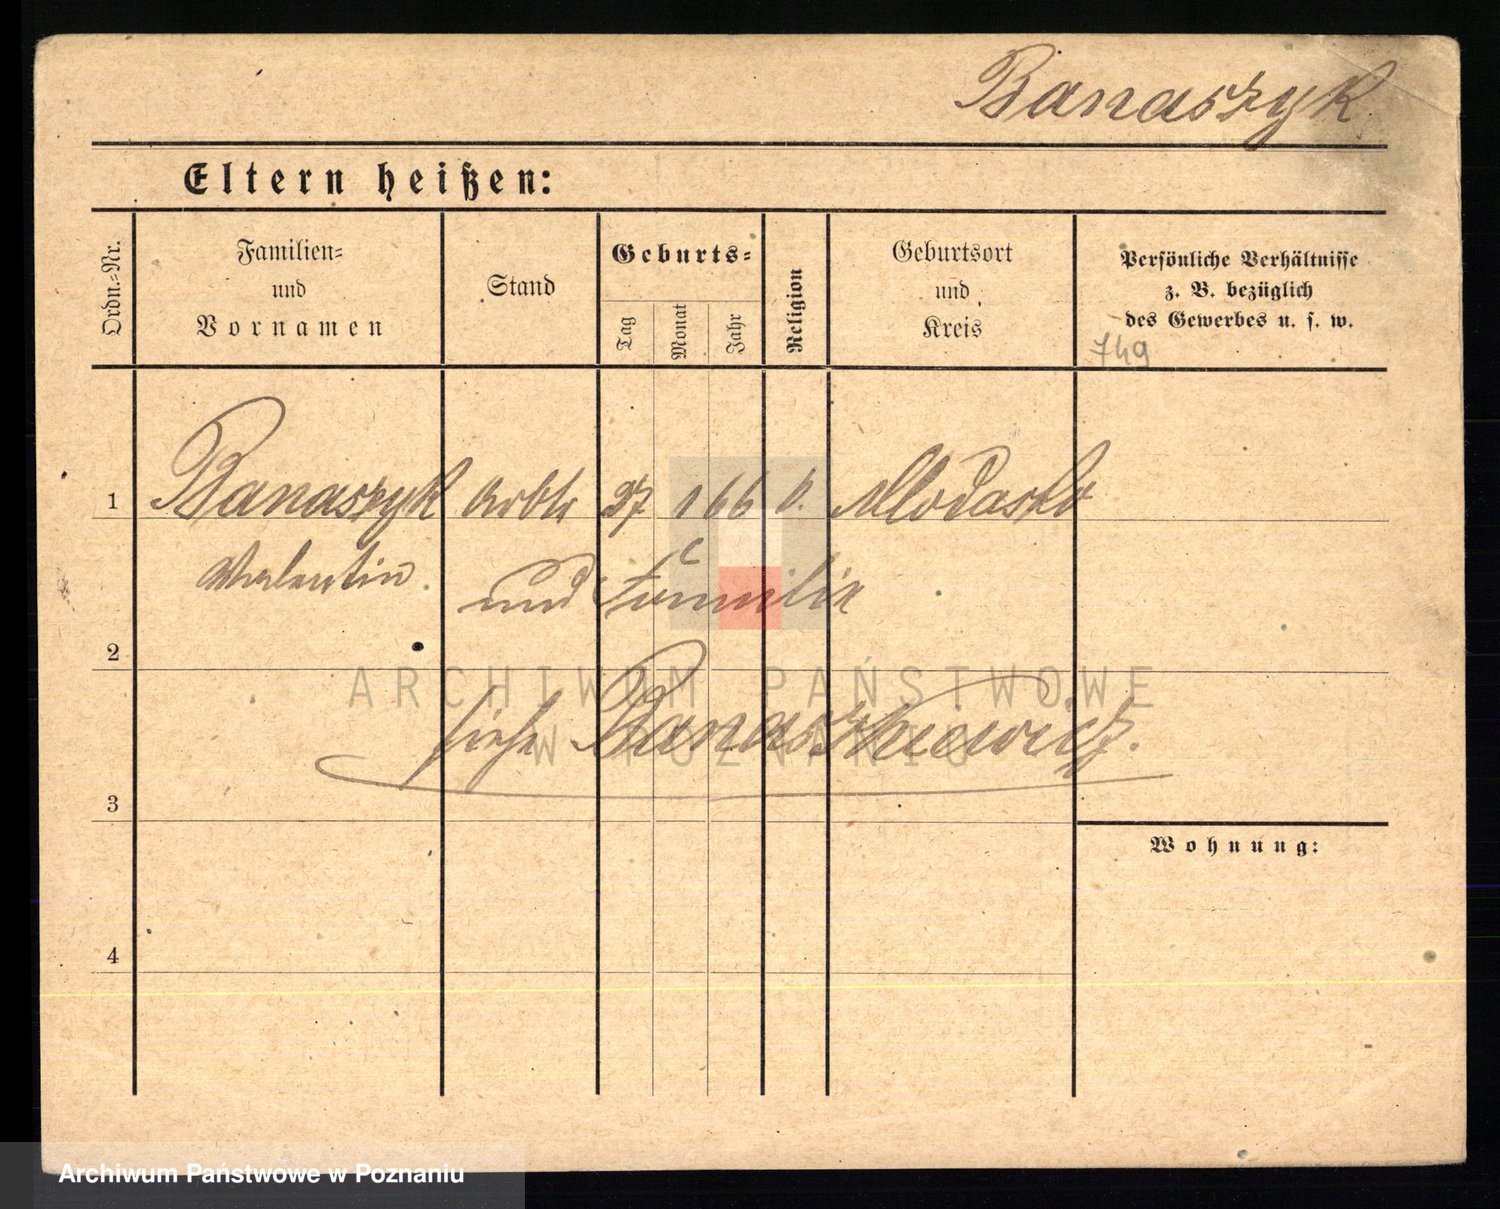 Banaszyk
Eltern heißen:
Ordn.=Nr.
Familien=
und
Vornamen
Stand
Geburts=
Tag
Monat
Jahr
Religion
Geburtsort
und
Kreis
Persönliche Verhältnisse
z. B. bezüglich
des Gewerbes u. s. w.
749
1 Banaszyk Arbtr 27 1 66 k. Mlodasko
Valentin.
und Familie
2
ARCHIWUM PAŃSTWOWE
W POZNANIU
siehe Banaszkiewicz.
3
Wohnung:
4
Archiwum Państwowe w Poznaniu